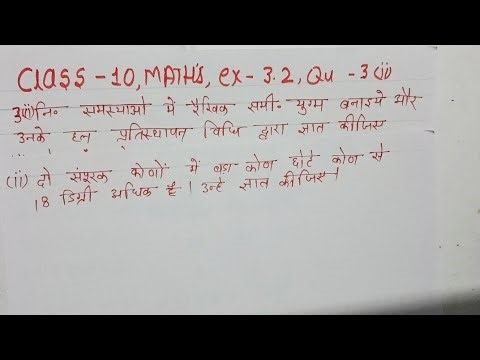 Class - 10, MATH'S, ex - 3.2, Qu - 3(ii)
3(ii) नि॰ समस्याओ में रैखिक समी॰ युग्म बनाइये और
उनके हल प्रतिस्थापन विधि द्वारा ज्ञात कीजिए
(ii) दो संपूरक कोणों में बडा कोण छोटे कोण से
18 डिग्री अधिक है। उन्हे ज्ञात कीजिए।